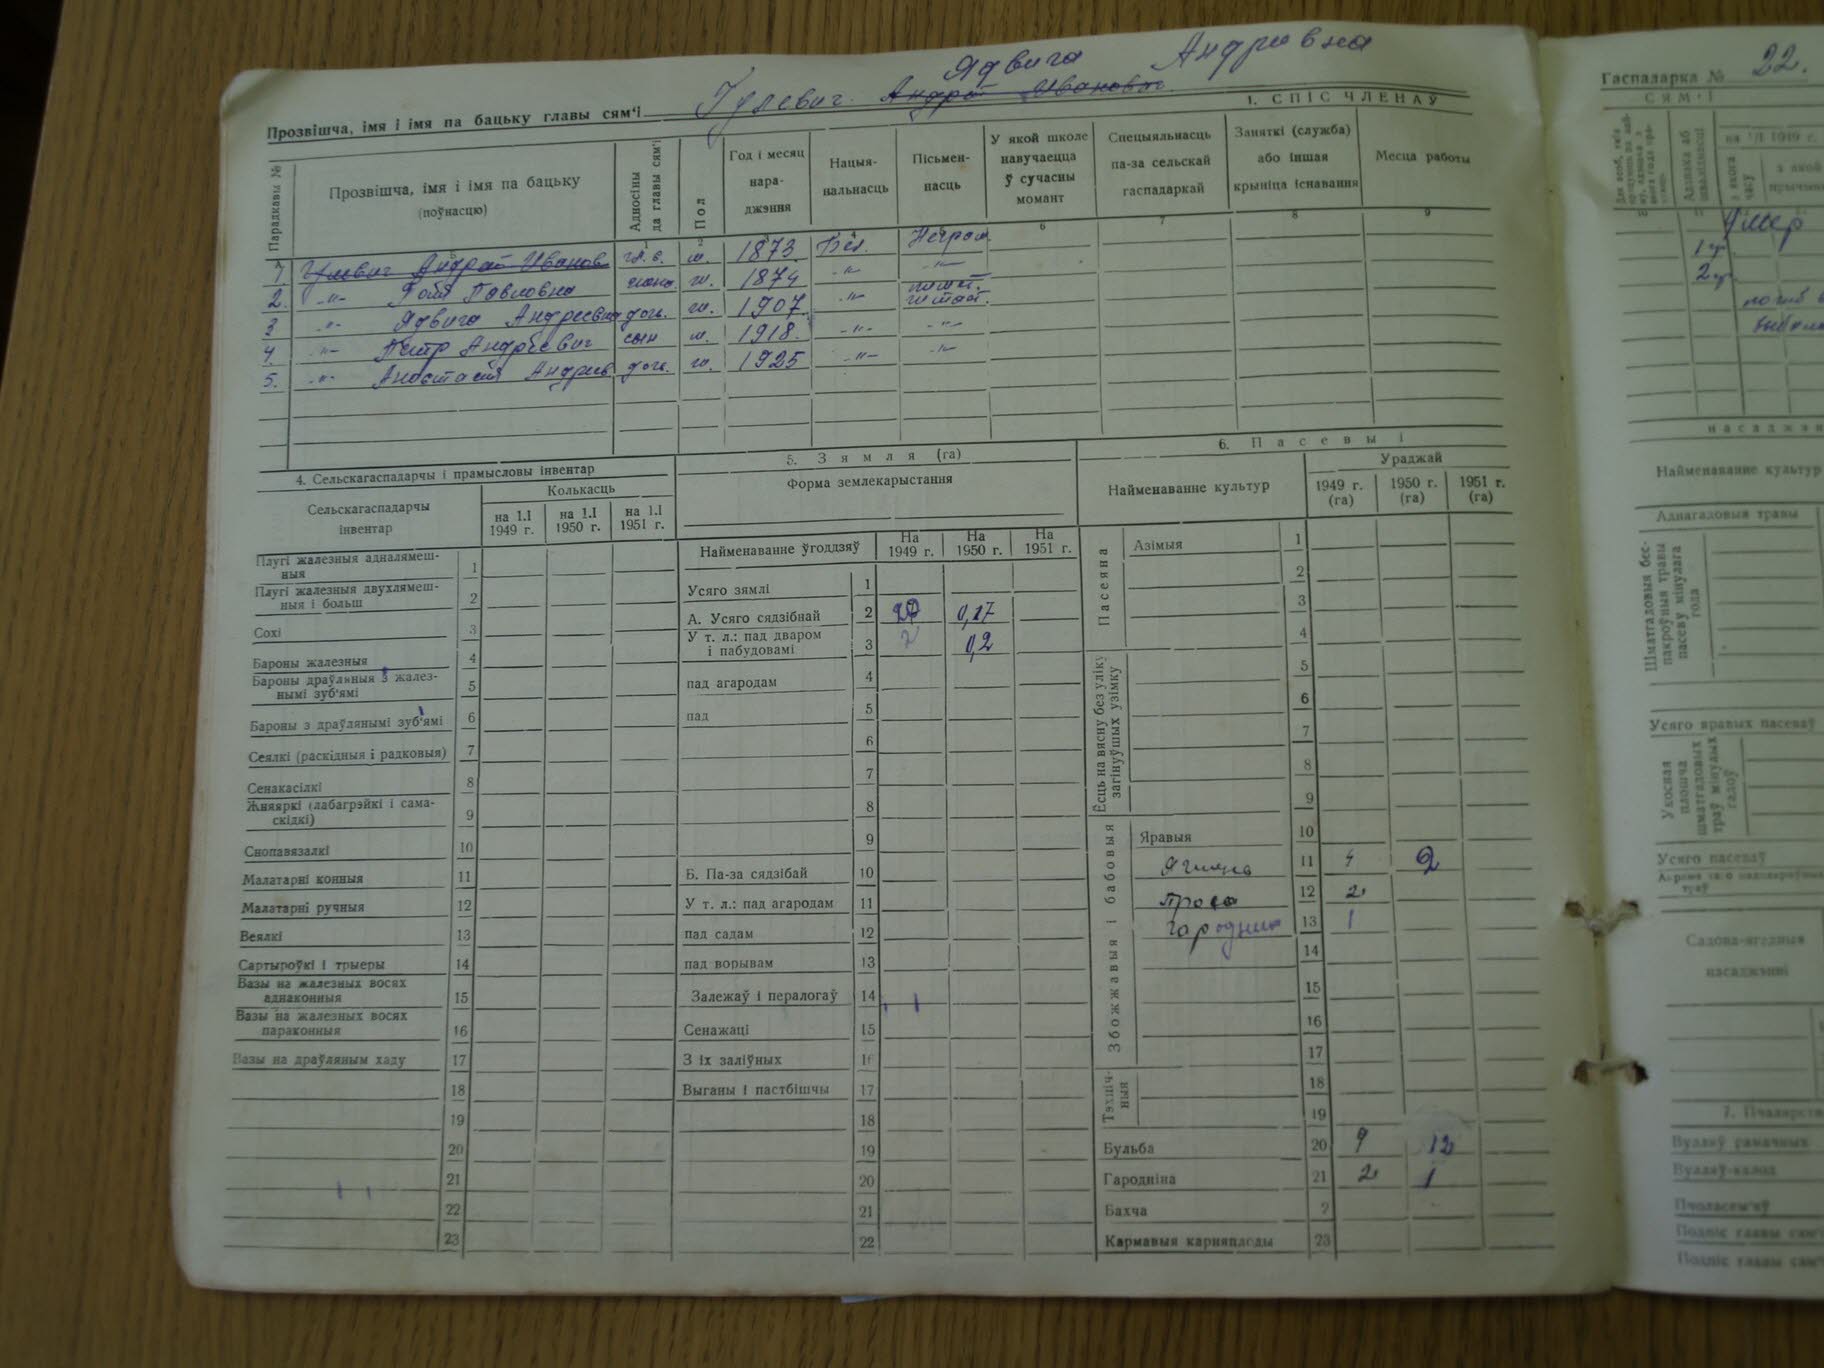 Ядвига Андреевна
Прозвішча, імя і імя па бацьку главы сям'і Гулевич Андрей Иванович
Гаспадарка № 22.
1. СПІС ЧЛЕНАЎ
СЯМ'І
Парадкавы №
Прозвішча, імя і імя па бацьку
(поўнасцю)
Адносіны да главы сям'і
Пол
Год і месяц нара-
джэння
Нацыя-
нальнасць
Пісьмен-
насць
У якой школе
навучаецца
ў сучасны
момант
Спецыяльнасць
па-за сельскай
гаспадаркай
Заняткі (служба)
або іншая
крыніца існавання
Месца работы
1 2 4 6 7 8 9
1. Гулевич Андрей Иванов гл. с. м. 1873 Бел. Неграм.
2. -"- Павловна жена ж. 1874 -"- -"-
3 -"- Ядвига Андреевна доч. ж. 1907 -"-
4 -"- Петр Андреевич сын м. 1918 -"- -"-
5. -"- Анастасия Андреев. доч. ж. 1925 -"- -"-
умер
1 гр.
2 гр.
4. Сельскагаспадарчы і прамысловы інвентар
Сельскагаспадарчы
інвентар
Колькасць
на 1.I
1949 г.
на 1.I
1950 г.
на 1.I
1951 г.
Плугі жалезныя адналямеш-
ныя 1
Плугі жалезныя двухлямеш-
ныя і больш 2
Сохі 3
Бароны жалезныя 4
Бароны драўляныя з жалез-
нымі зуб'ямі 5
Бароны з драўлянымі зуб'ямі 6
Сеялкі (раскідныя і радковыя) 7
Сенакасілкі 8
Жняяркі (лабагрэйкі і сама-
скідкі) 9
Снопавязалкі 10
Малатарні конныя 11
Малатарні ручныя 12
Веялкі 13
Сартыроўкі і трыеры 14
Вазы на жалезных восях
аднаконныя 15
Вазы на жалезных восях
параконныя 16
Вазы на драўляным хаду 17
18
19
20
21
22
23
5. Зямля (га)
Форма землекарыстання
Найменаванне ўгоддзяў
На
1949 г.
На
1950 г.
На
1951 г.
Усяго зямлі 1
А. Усяго сядзібнай 2 0,27
У т. л.: пад дваром
і пабудовамі 3 0,2
пад агародам 4
пад 5
6
7
8
9
Б. Па-за сядзібай 10
У т. л.: пад агародам 11
пад садам 12
пад ворывам 13
Залежаў і пералогаў 14
Сенажаці 15
З іх заліўных 16
Выганы і пастбішчы 17
18
19
20
21
22
6. Пасевы і
Найменаванне культур
Ураджай
1949 г.
(га)
1950 г.
(га)
1951 г.
(га)
Пасеяна
Азімыя 1
2
3
4
Ёсць на вясну без уліку
загінуўшых узімку
5
6
7
8
9
Збожжавыя і бабовыя
Яравыя 10
Ячмень 11 4 2
Проса 12 2
13 1
14
15
16
17
Тэхніч-
ныя
18
19
Бульба 20 9 12
Гародніна 21 2 1
Бахча 2
Кармавыя карняплоды 23
насаджан
Найменаванне культур
Аднагадовыя травы
Шматгадовыя бес-
пакроўныя травы
пасеву мінулага
года
Усяго яравых пасеваў
Укосная
плошча
шматгадовых
траў мінулых
гадоў
Усяго пасеваў
Садова-ягадныя
насаджэнні
7. Пчалярства
Вулляў рамачных
Вулляў-калод
Пчоласем'яў
Подпіс главы сям'
Подпіс главы сям'